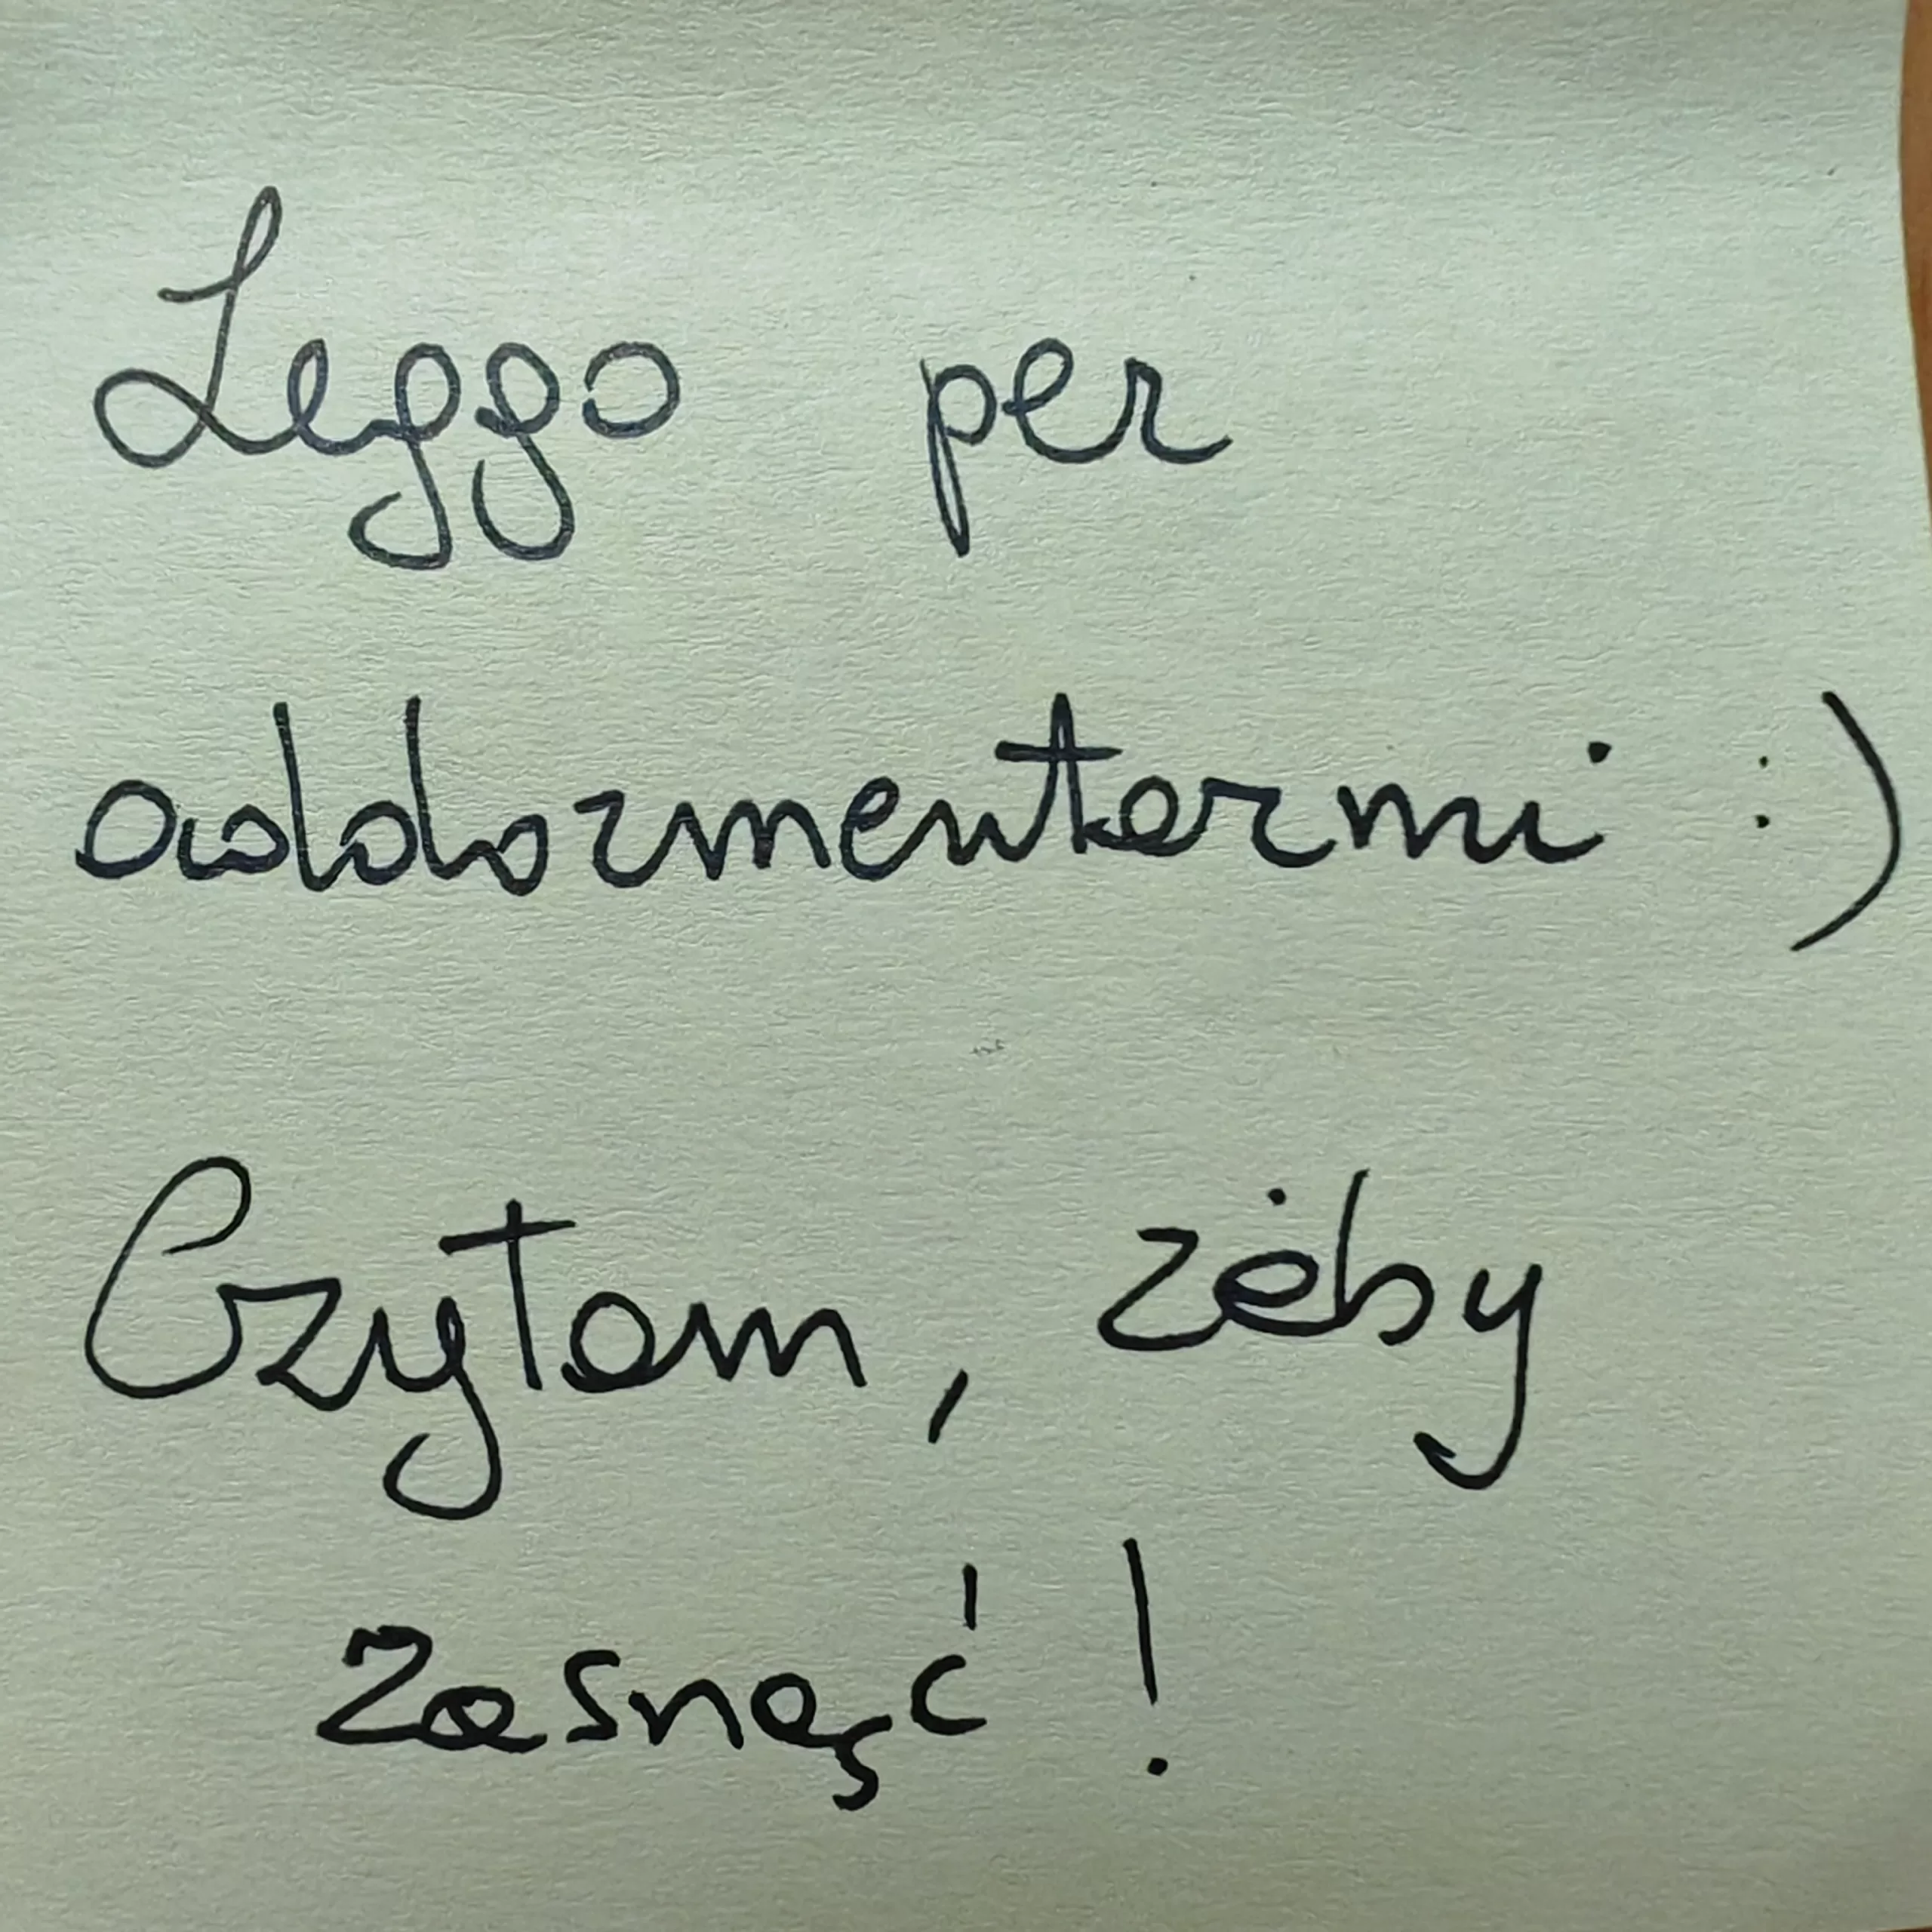 Leggo per
addormentarmi :)
Czytam, żeby
zasnąć!